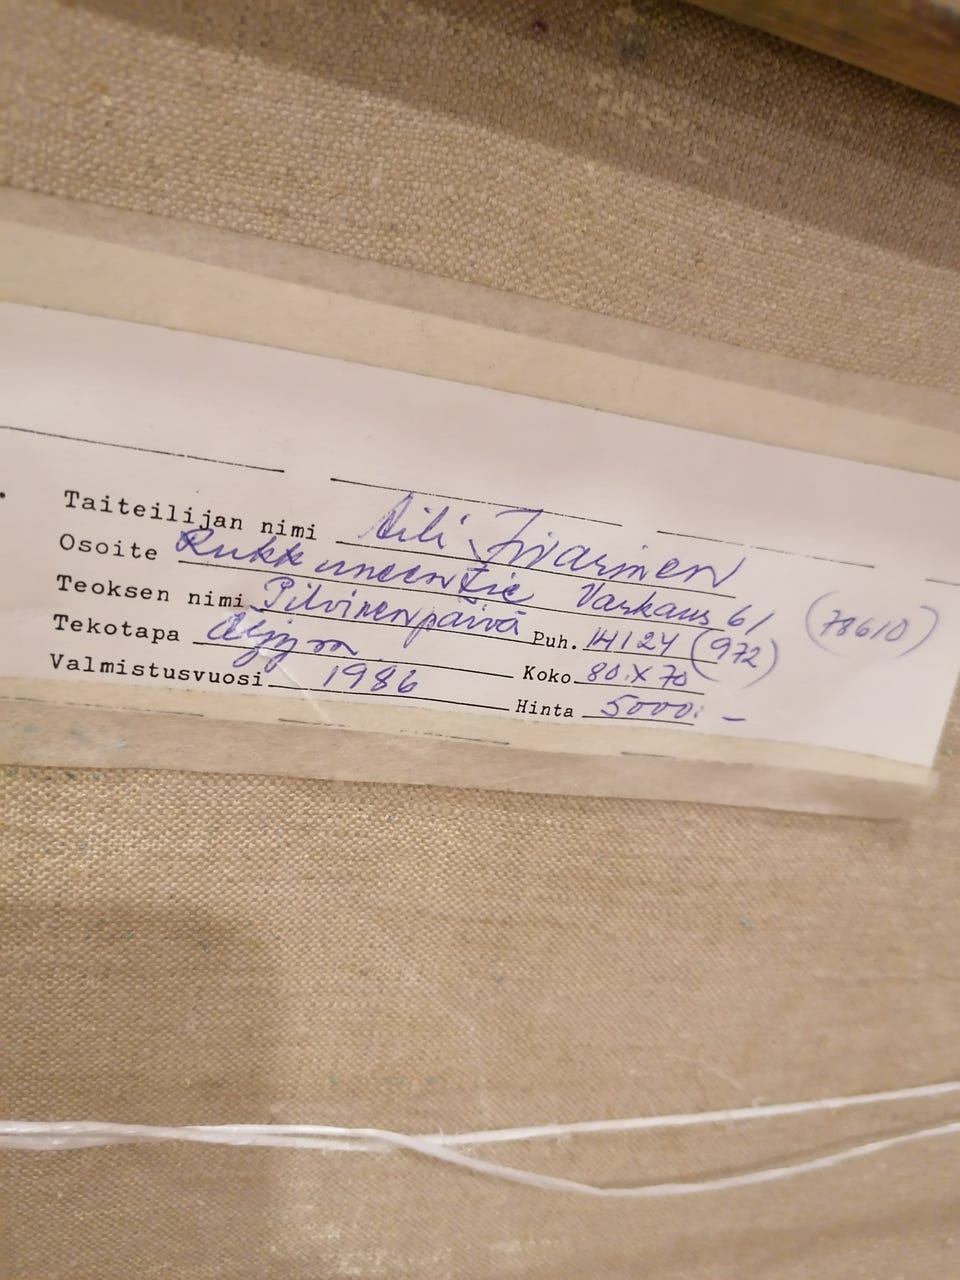 Taiteilijan nimi Aili
Osoite Varkaus 61 (78610)
Teoksen nimi Pilvinenpäivä Puh. 14124 (972)
Tekotapa Koko 80 X 70
Valmistusvuosi 1986 Hinta 5000:-